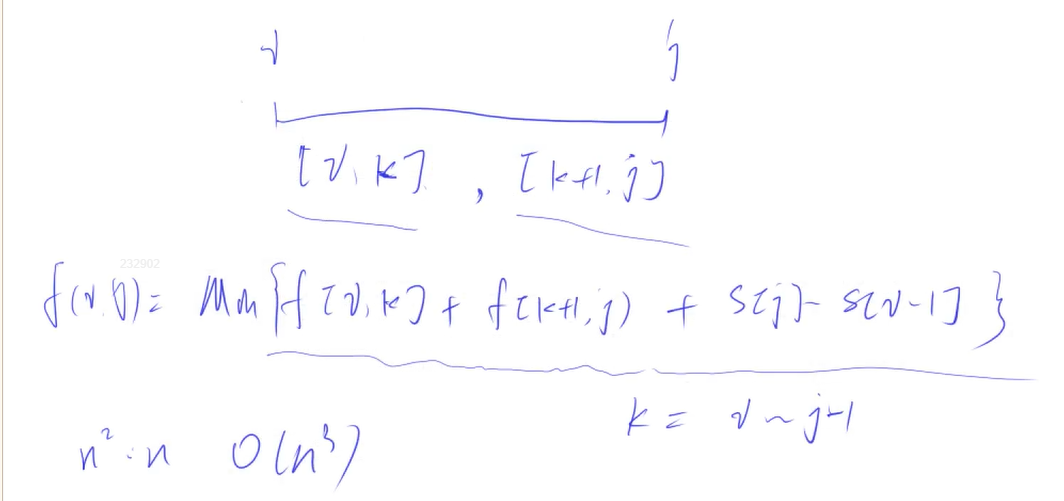 i j
[i, k] , [k+1, j]
232902
f(i, j) = Min{f[i, k] + f[k+1, j) + S[j] - S[i-1]}
k = i ~ j-1
n² · n O(n³)